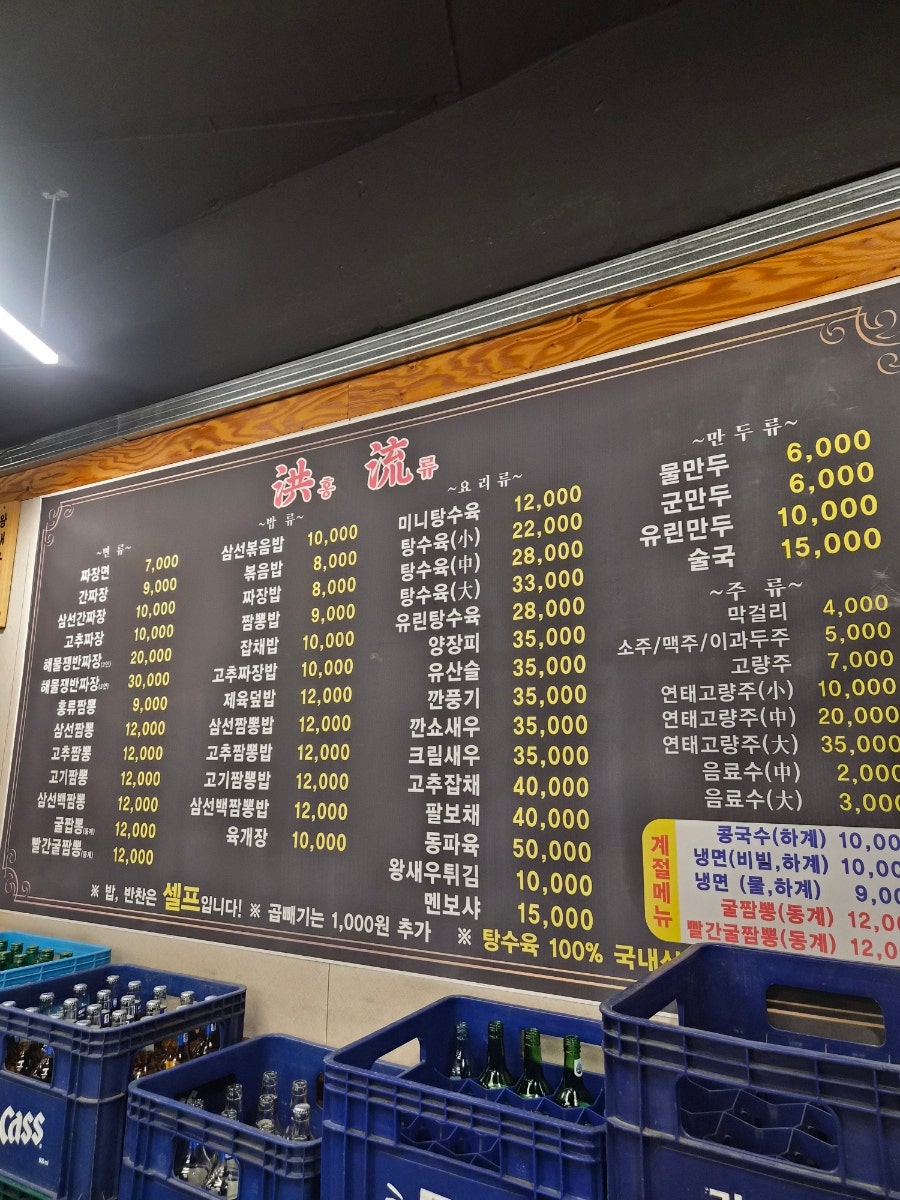 洪홍 流류
~면 류~
짜장면 7,000
간짜장 9,000
삼선간짜장 10,000
고추짜장 10,000
해물쟁반짜장 20,000
해물쟁반짜장 30,000
홍류짬뽕 9,000
삼선짬뽕 12,000
고추짬뽕 12,000
고기짬뽕 12,000
삼선백짬뽕 12,000
굴짬뽕(동계) 12,000
빨간굴짬뽕(동계) 12,000
~밥 류~
삼선볶음밥 10,000
볶음밥 8,000
짜장밥 8,000
짬뽕밥 9,000
잡채밥 10,000
고추짜장밥 10,000
제육덮밥 12,000
삼선짬뽕밥 12,000
고추짬뽕밥 12,000
고기짬뽕밥 12,000
삼선백짬뽕밥 12,000
육개장 10,000
~요리류~
미니탕수육 12,000
탕수육(小) 22,000
탕수육(中) 28,000
탕수육(大) 33,000
유린탕수육 28,000
양장피 35,000
유산슬 35,000
깐풍기 35,000
깐쇼새우 35,000
크림새우 35,000
고추잡채 40,000
팔보채 40,000
동파육 50,000
왕새우튀김 10,000
멘보샤 15,000
~만두류~
물만두 6,000
군만두 6,000
유린만두 10,000
술국 15,000
~주 류~
막걸리 4,000
소주/맥주/이과두주 5,000
고량주 7,000
연태고량주(小) 10,000
연태고량주(中) 20,000
연태고량주(大) 35,000
음료수(中) 2,000
음료수(大) 3,000
계절메뉴
콩국수(하계) 10,00
냉면(비빔,하계) 10,00
냉면 (물,하계) 9,00
굴짬뽕(동계) 12,00
빨간굴짬뽕(동계) 12,0
※ 밥, 반찬은 셀프입니다! ※ 곱빼기는 1,000원 추가 ※ 탕수육 100% 국내산
Cass